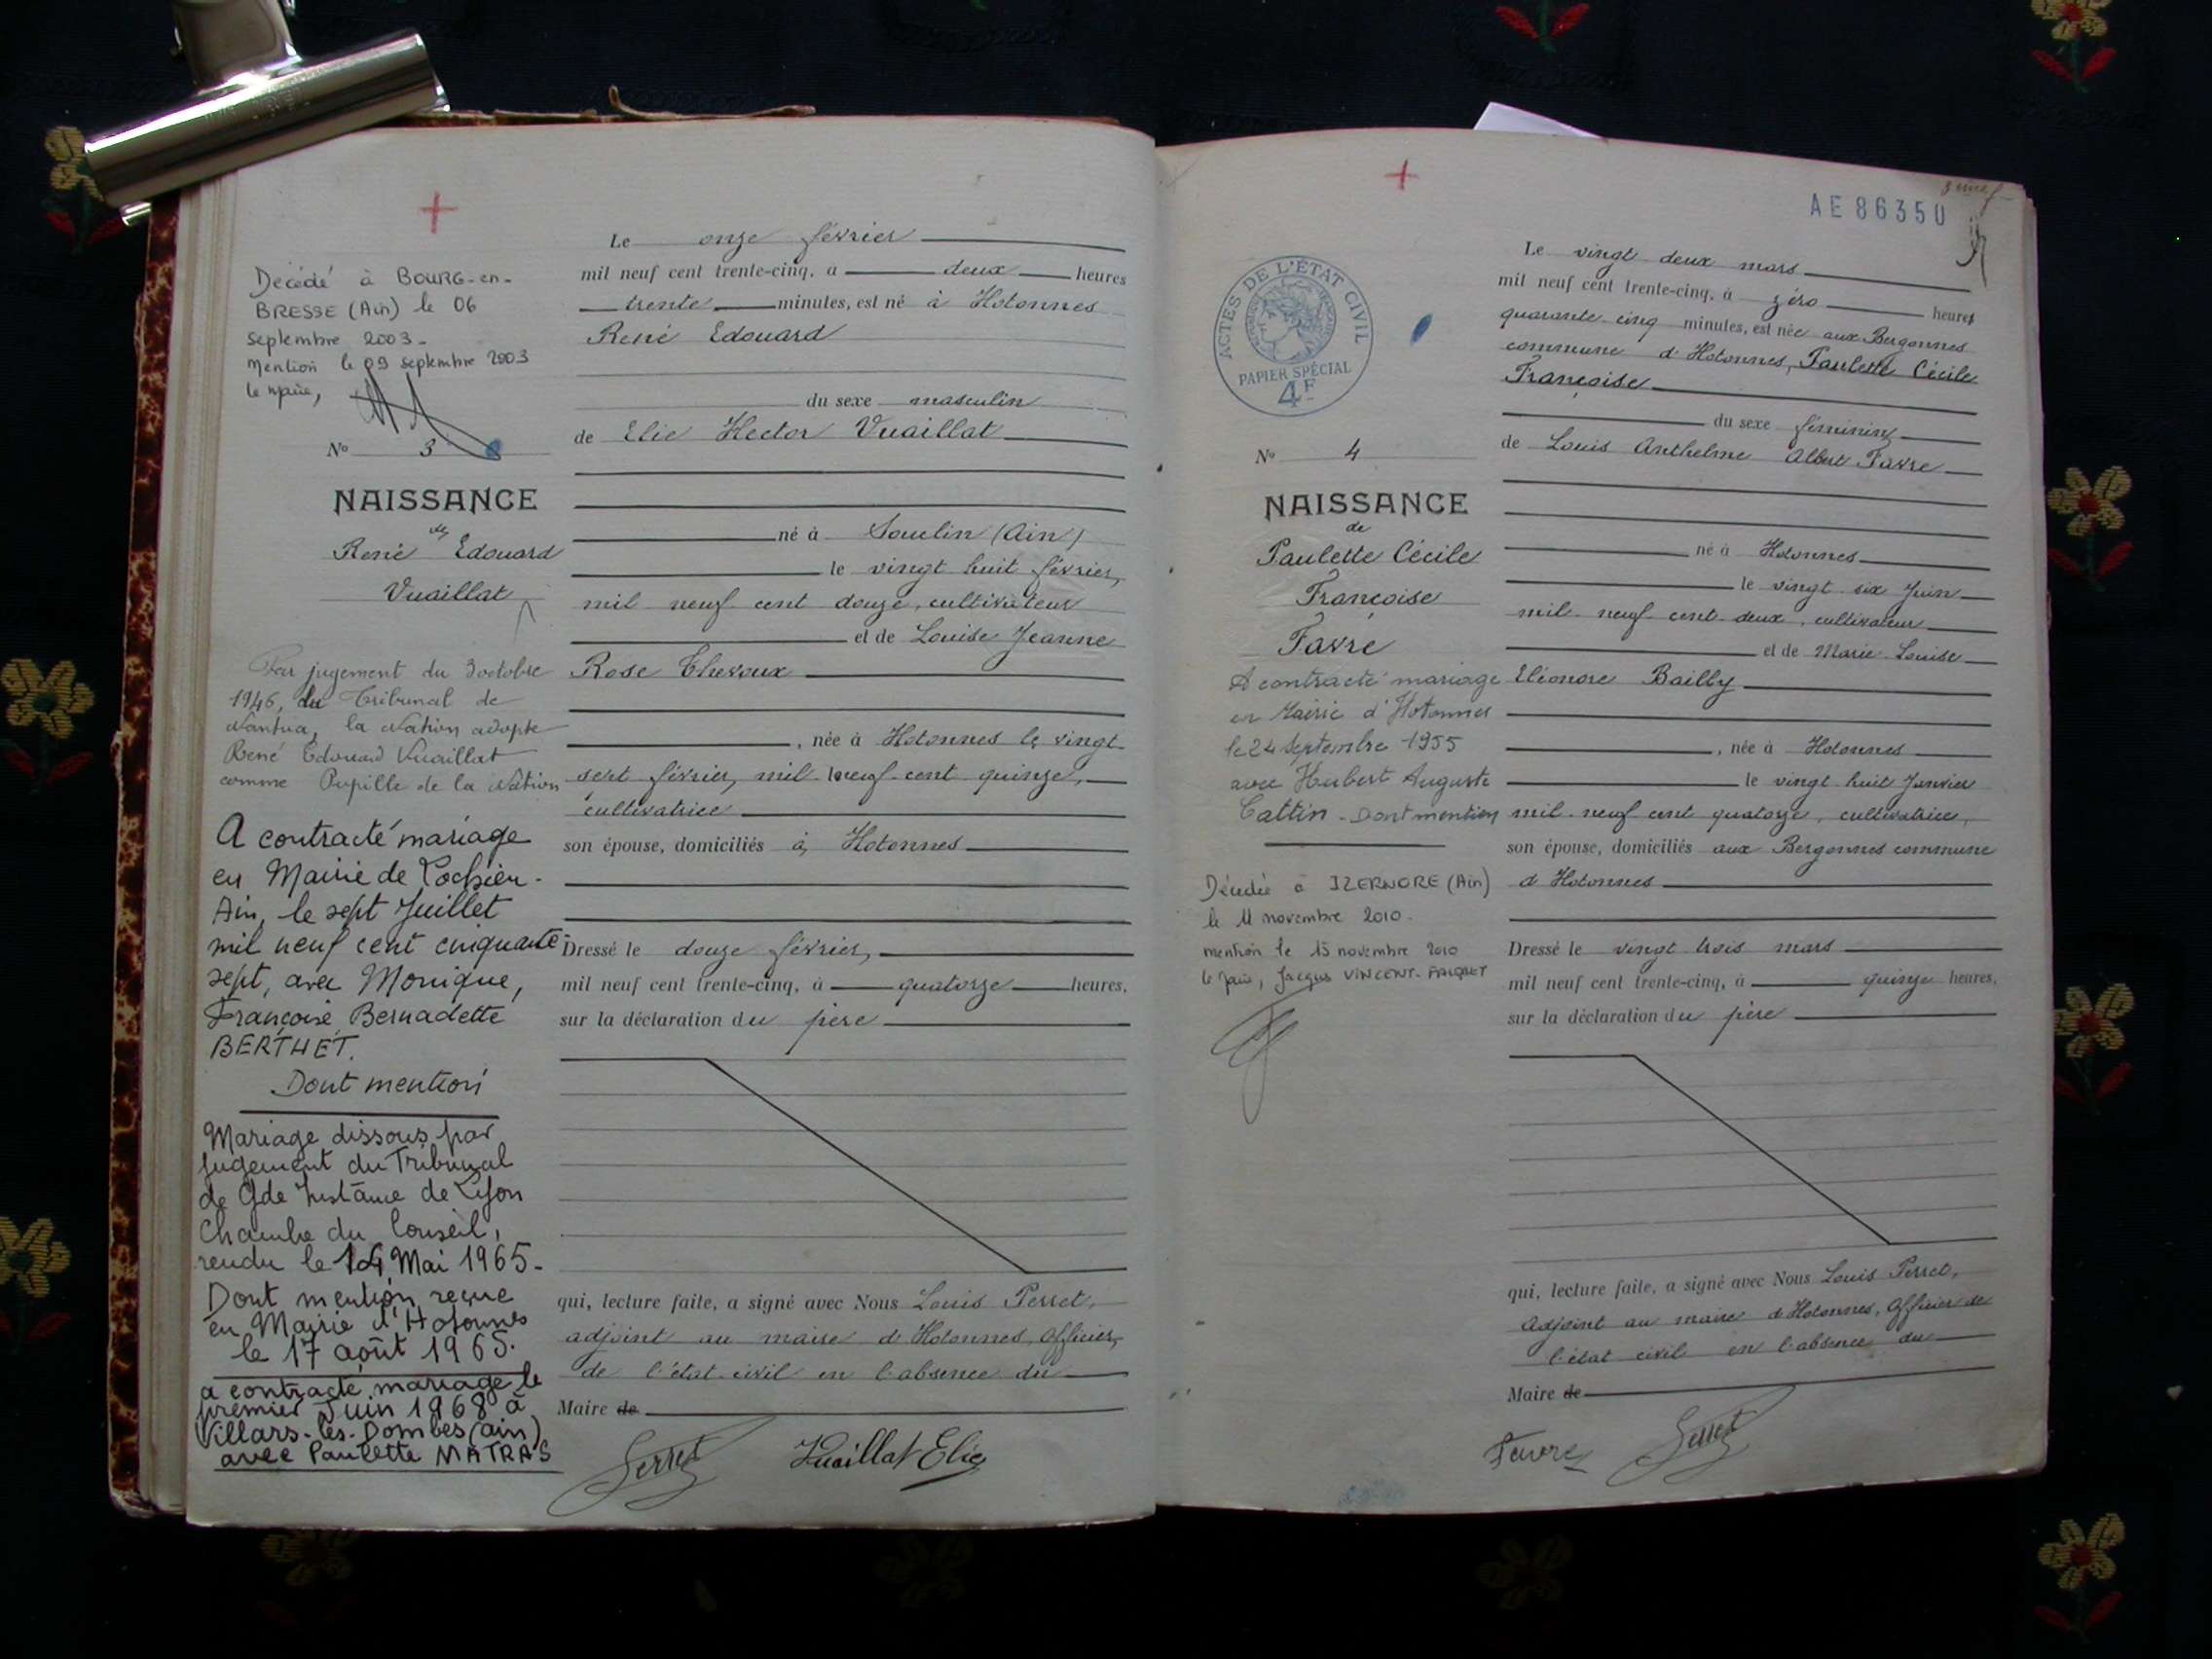 Décédé à BOURG-en-
BRESSE (Ain) le 06
septembre 2003-
mention le 09 septembre 2003
le maire,
No 3
NAISSANCE
de
René Edouard
Vuaillat
Par jugement du 3 octobre
1946, du Tribunal de
Nantua, la Nation adopte
René Edouard Vuaillat
comme Pupille de la Nation
A contracté mariage
en Mairie de Lochieu-
Ain, le sept Juillet
mil neuf cent cinquante-
sept, avec Monique,
Françoise Bernadette
BERTHET.
Dont mention
Mariage dissous par
jugement du Tribunal
de Gde Instance de Lyon
Chambre du Conseil,
rendu le 14 Mai 1965-
Dont mention reçue
en Mairie d'Hotonnes
le 17 août 1965.
a contracté mariage le
premier Juin 1968 à
Villars-les-Dombes (ain)
avec Paulette MATRAS
Le onze février
mil neuf cent trente-cinq, à deux heures
trente minutes, est né à Hotonnes
René Edouard
du sexe masculin
de Elie Hector Vuaillat
né à (Ain)
le vingt huit février,
mil neuf cent douze, cultivateur
et de Louise Jeanne
Rose Chevoux
, née à Hotonnes le vingt
sept février, mil neuf cent quinze,
cultivatrice
son épouse, domiciliés à Hotonnes
Dressé le douze février,
mil neuf cent trente-cinq, à quatorze heures,
sur la déclaration du père
qui, lecture faite, a signé avec Nous Louis Perret,
adjoint au maire d'Hotonnes, Officier
de l'état civil en l'absence du
Maire de
Perret Vuaillat Elie
AE 86350
ACTES DE L'ÉTAT CIVIL
PAPIER SPÉCIAL
4F
No 4
NAISSANCE
de
Paulette Cécile
Françoise
Favre
A contracté mariage
en Mairie d'Hotonnes
le 24 Septembre 1955
avec Hubert Auguste
Cattin - Dont mention
Décédée à IZERNORE (Ain)
le 11 novembre 2010.
mention le 15 novembre 2010
le maire, Jacques VINCENT-FALQUET
Le vingt deux mars
mil neuf cent trente-cinq, à zéro heures
quarante cinq minutes, est née aux Bergonnes
commune d'Hotonnes, Paulette Cécile
Françoise
du sexe féminin
de Louis Anthelme Albert Favre
né à Hotonnes
le vingt six Juin
mil neuf cent deux, cultivateur
et de Marie Louise
Eléonore Bailly
, née à Hotonnes
le vingt huit Janvier
mil neuf cent quatorze, cultivatrice,
son épouse, domiciliés aux Bergonnes commune
d'Hotonnes
Dressé le vingt trois mars
mil neuf cent trente-cinq, à quinze heures,
sur la déclaration du père
qui, lecture faite, a signé avec Nous Louis Perret,
adjoint au maire d'Hotonnes, Officier de
l'état civil en l'absence du
Maire de
Favre Perret